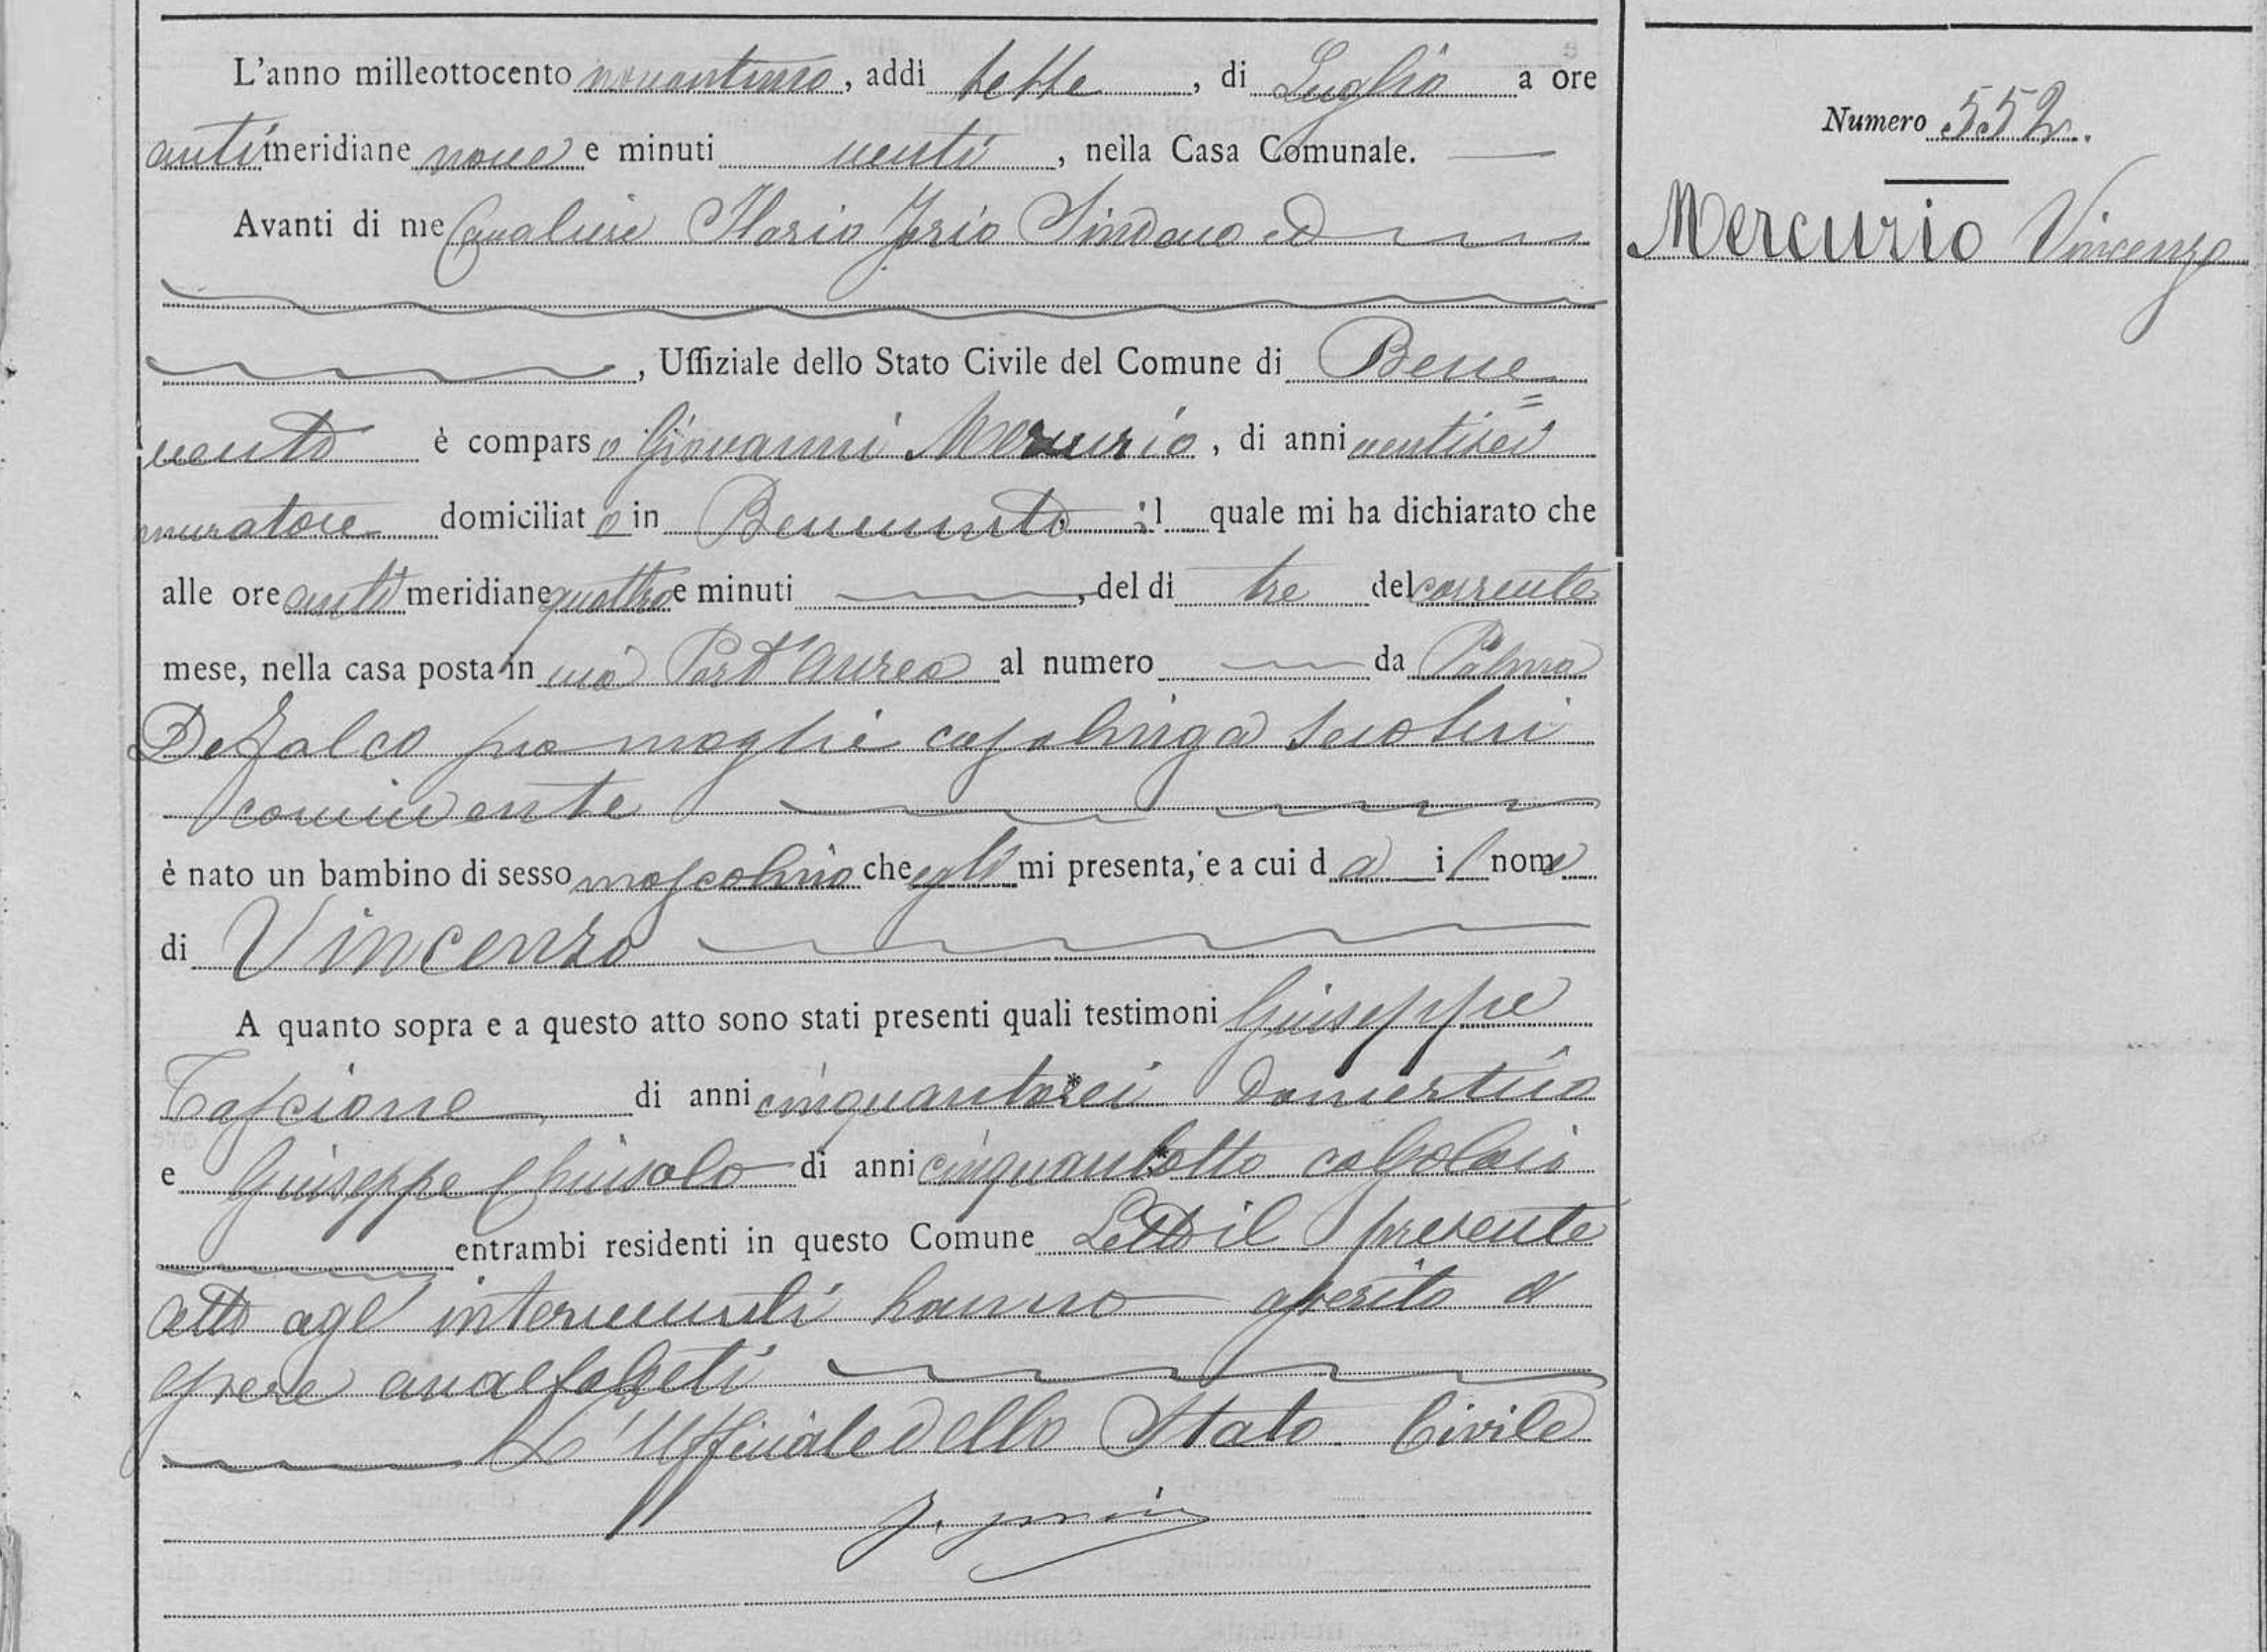 L'anno milleottocento novantuno, addì sette, di Luglio a ore
antimeridiane nove e minuti venti, nella Casa Comunale.
Avanti di me Cavaliere Ilario Jorio Sindaco ed
, Uffiziale dello Stato Civile del Comune di Bene=
vento è comparso Giovanni Mercurio, di anni ventisei
muratore domiciliato in Benevento il quale mi ha dichiarato che
alle ore antimeridiane quattro e minuti , del dì tre del corrente
mese, nella casa posta in via Port'aurea al numero da Palma
De Falco sua moglie casalinga secolui
convivente
è nato un bambino di sesso mascolino che egli mi presenta, e a cui dà il nome
di Vincenzo
A quanto sopra e a questo atto sono stati presenti quali testimoni Giuseppe
Cascione di anni cinquantasei domestico
e Giuseppe Chiusolo di anni cinquantotto calzolaio
entrambi residenti in questo Comune Letto il presente
atto agl'intervenuti hanno asserito d'
essere analfabeti
L'Uffiziale dello Stato Civile
J. Jorio
Numero 552.
Mercurio Vincenzo